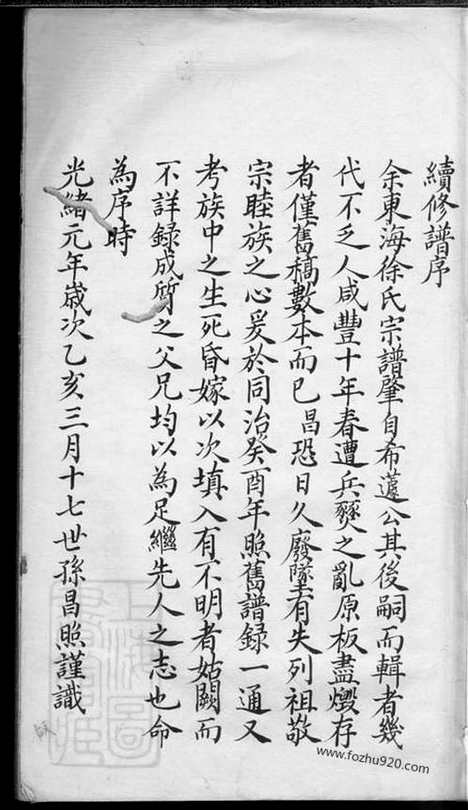 續修譜序
余東海徐氏宗譜肇自希蘧公其後嗣而輯者幾
代不乏人咸豐十年春遭兵燹之亂原板盡燬存
者僅舊稿數本而已昌恐日久廢墜有失列祖敬
宗睦族之心爰於同治癸酉年照舊譜録一通又
考族中之生死昏嫁以次填入有不明者姑闕而
不詳録成質之父兄均以為足繼先人之志也命
為序時
光緒元年嵗次乙亥三月十七世孫昌照謹識
www.fozhu920.com